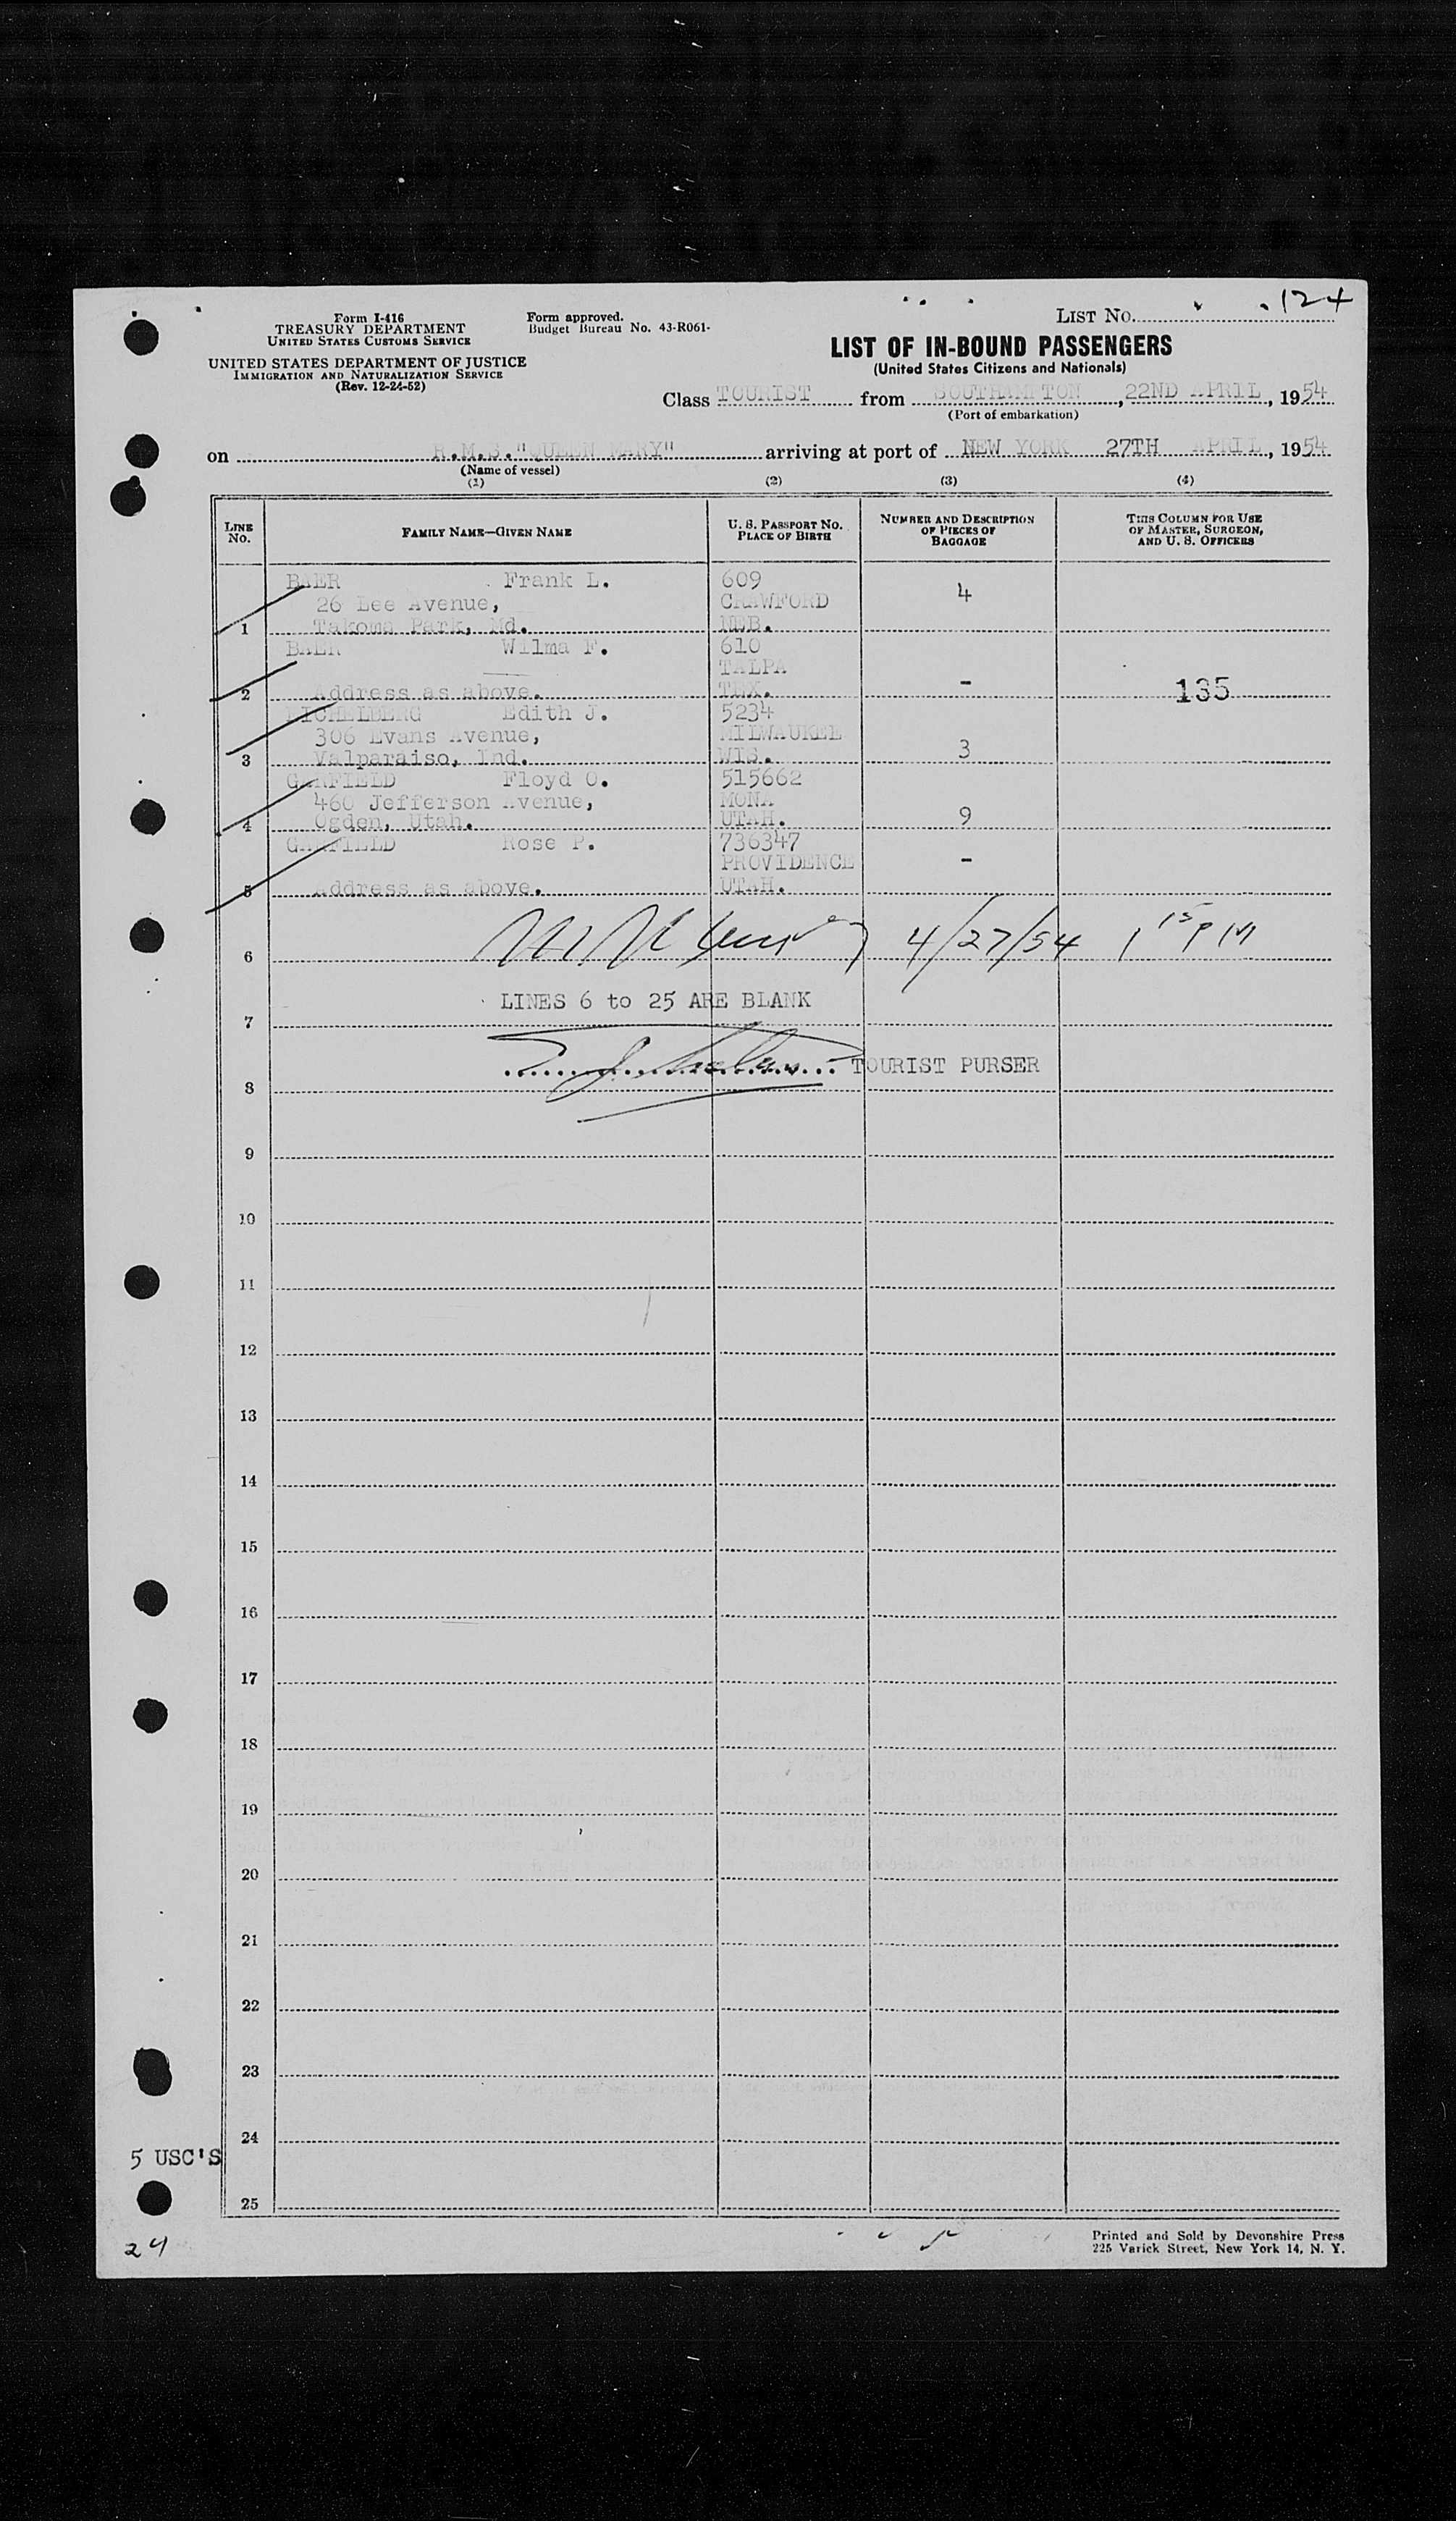 124
Form I-416
TREASURY DEPARTMENT
UNITED STATES CUSTOMS SERVICE
Form approved.
Budget Bureau No. 43-R061-
LIST NO.
UNITED STATES DEPARTMENT OF JUSTICE
IMMIGRATION AND NATURALIZATION SERVICE
(Rev. 12-24-52)
LIST OF IN-BOUND PASSENGERS
(United States Citizens and Nationals)
Class TOURIST from SOUTHAMPTON, 22ND APRIL, 1954
(Port of embarkation)
on R.M.S. "QUEEN MARY" arriving at port of NEW YORK 27TH APRIL, 1954
(Name of vessel)
(1) (2) (3) (4)
LINE NO. FAMILY NAME—GIVEN NAME U. S. PASSPORT NO. PLACE OF BIRTH NUMBER AND DESCRIPTION OF PIECES OF BAGGAGE THIS COLUMN FOR USE OF MASTER, SURGEON, AND U. S. OFFICERS
BAER Frank L. 609
26 Lee Avenue, CRAWFORD 4
1 Takoma Park, Md. NEB.
BAER Wilma F. 610
TALPA
2 Address as above. TEX. - 135
EICHELBERG Edith J. 5234
306 Evans Avenue, MILWAUKEE
3 Valparaiso, Ind. WIS. 3
GARFIELD Floyd O. 515662
460 Jefferson Avenue, MONA
4 Ogden, Utah. UTAH. 9
GARFIELD Rose P. 736347
PROVIDENCE -
5 Address as above. UTAH.
6 4/27/54 1 15 PM
LINES 6 to 25 ARE BLANK
7
TOURIST PURSER
8
9
10
11
12
13
14
15
16
17
18
19
20
21
22
23
24
5 USC'S
25
24
Printed and Sold by Devonshire Press
225 Varick Street, New York 14, N. Y.